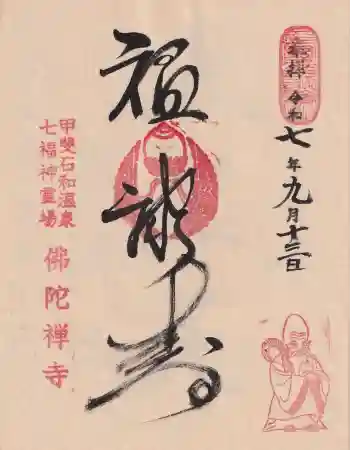 奉拝 令和
七年九月十三日
福禄寿
甲斐石和温泉
七福神霊場
佛陀禅寺